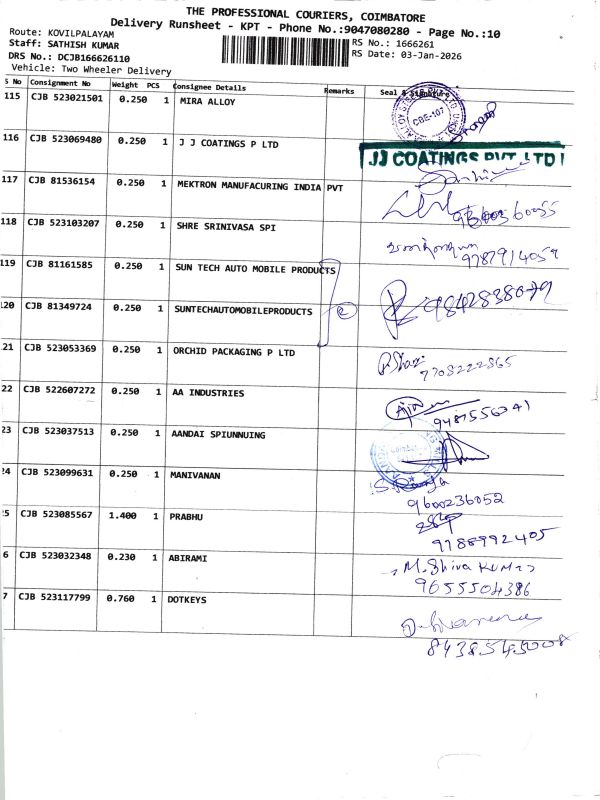 THE PROFESSIONAL COURIERS, COIMBATORE
Delivery Runsheet - KPT - Phone No.:9047080280 - Page No.:10
Route: KOVILPALAYAM
Staff: SATHISH KUMAR
RS No.: 1666261
DRS No.: DCJB166626110
RS Date: 03-Jan-2026
Vehicle: Two Wheeler Delivery
S No Consignment No Weight PCS Consignee Details Remarks Seal & Signature
115 CJB 523021501 0.250 1 MIRA ALLOY
CBE-107
116 CJB 523069480 0.250 1 J J COATINGS P LTD
JJ COATINGS PVT LTD
117 CJB 81536154 0.250 1 MEKTRON MANUFACURING INDIA PVT
118 CJB 523103207 0.250 1 SHRE SRINIVASA SPI
9787914059
119 CJB 81161585 0.250 1 SUN TECH AUTO MOBILE PRODUCTS
9842838079
120 CJB 81349724 0.250 1 SUNTECHAUTOMOBILEPRODUCTS
21 CJB 523053369 0.250 1 ORCHID PACKAGING P LTD
7708222865
22 CJB 522607272 0.250 1 AA INDUSTRIES
9487556341
23 CJB 523037513 0.250 1 AANDAI SPIUNNUING
24 CJB 523099631 0.250 1 MANIVANAN
9600236052
5 CJB 523085567 1.400 1 PRABHU
9788992405
6 CJB 523032348 0.230 1 ABIRAMI
M. Shiva KUMAR
9655504386
7 CJB 523117799 0.760 1 DOTKEYS
8438545008